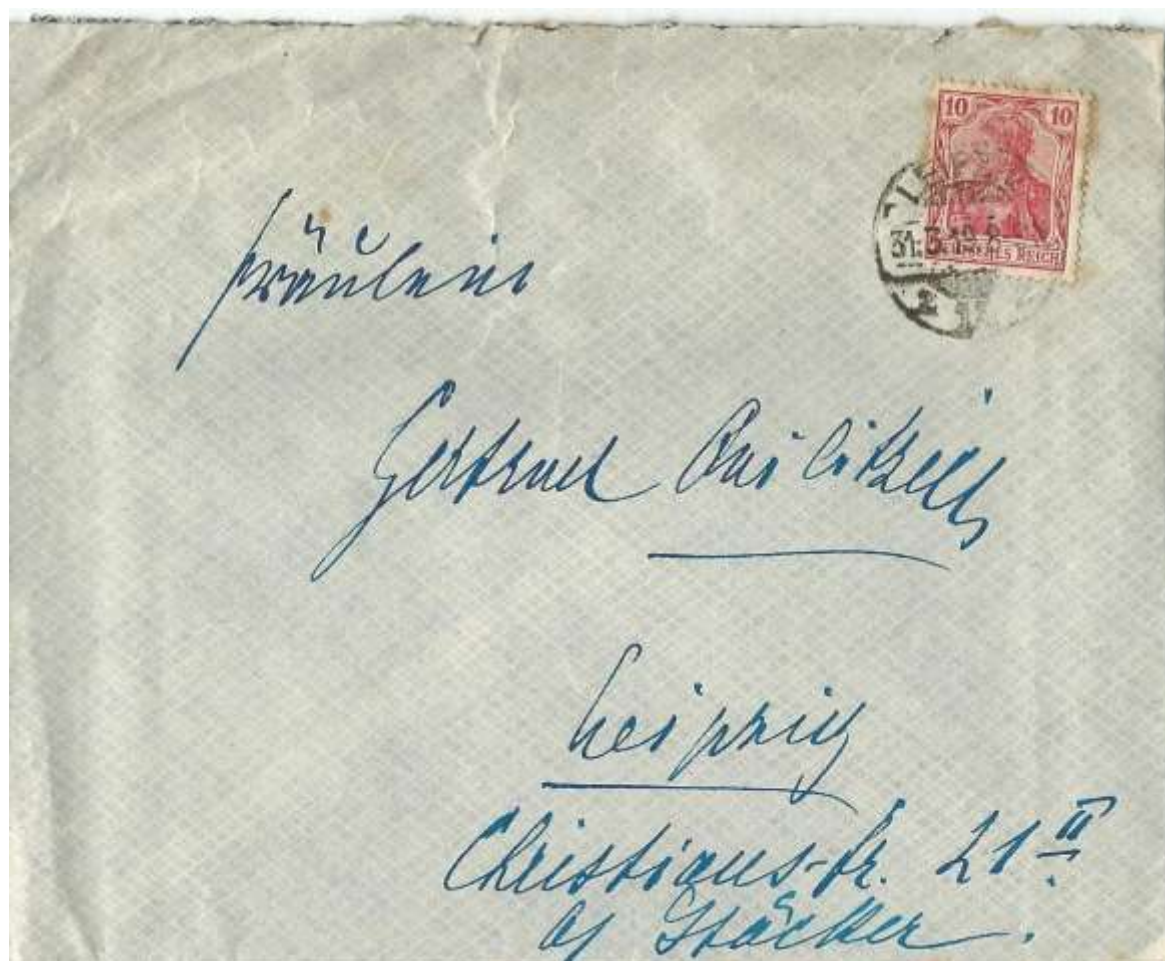 10 10
DEUTSCHES REICH
31.5.
2
Fräulein
Gertrud
Leipzig
Christianstr. 21 II
b/ Stäcker.